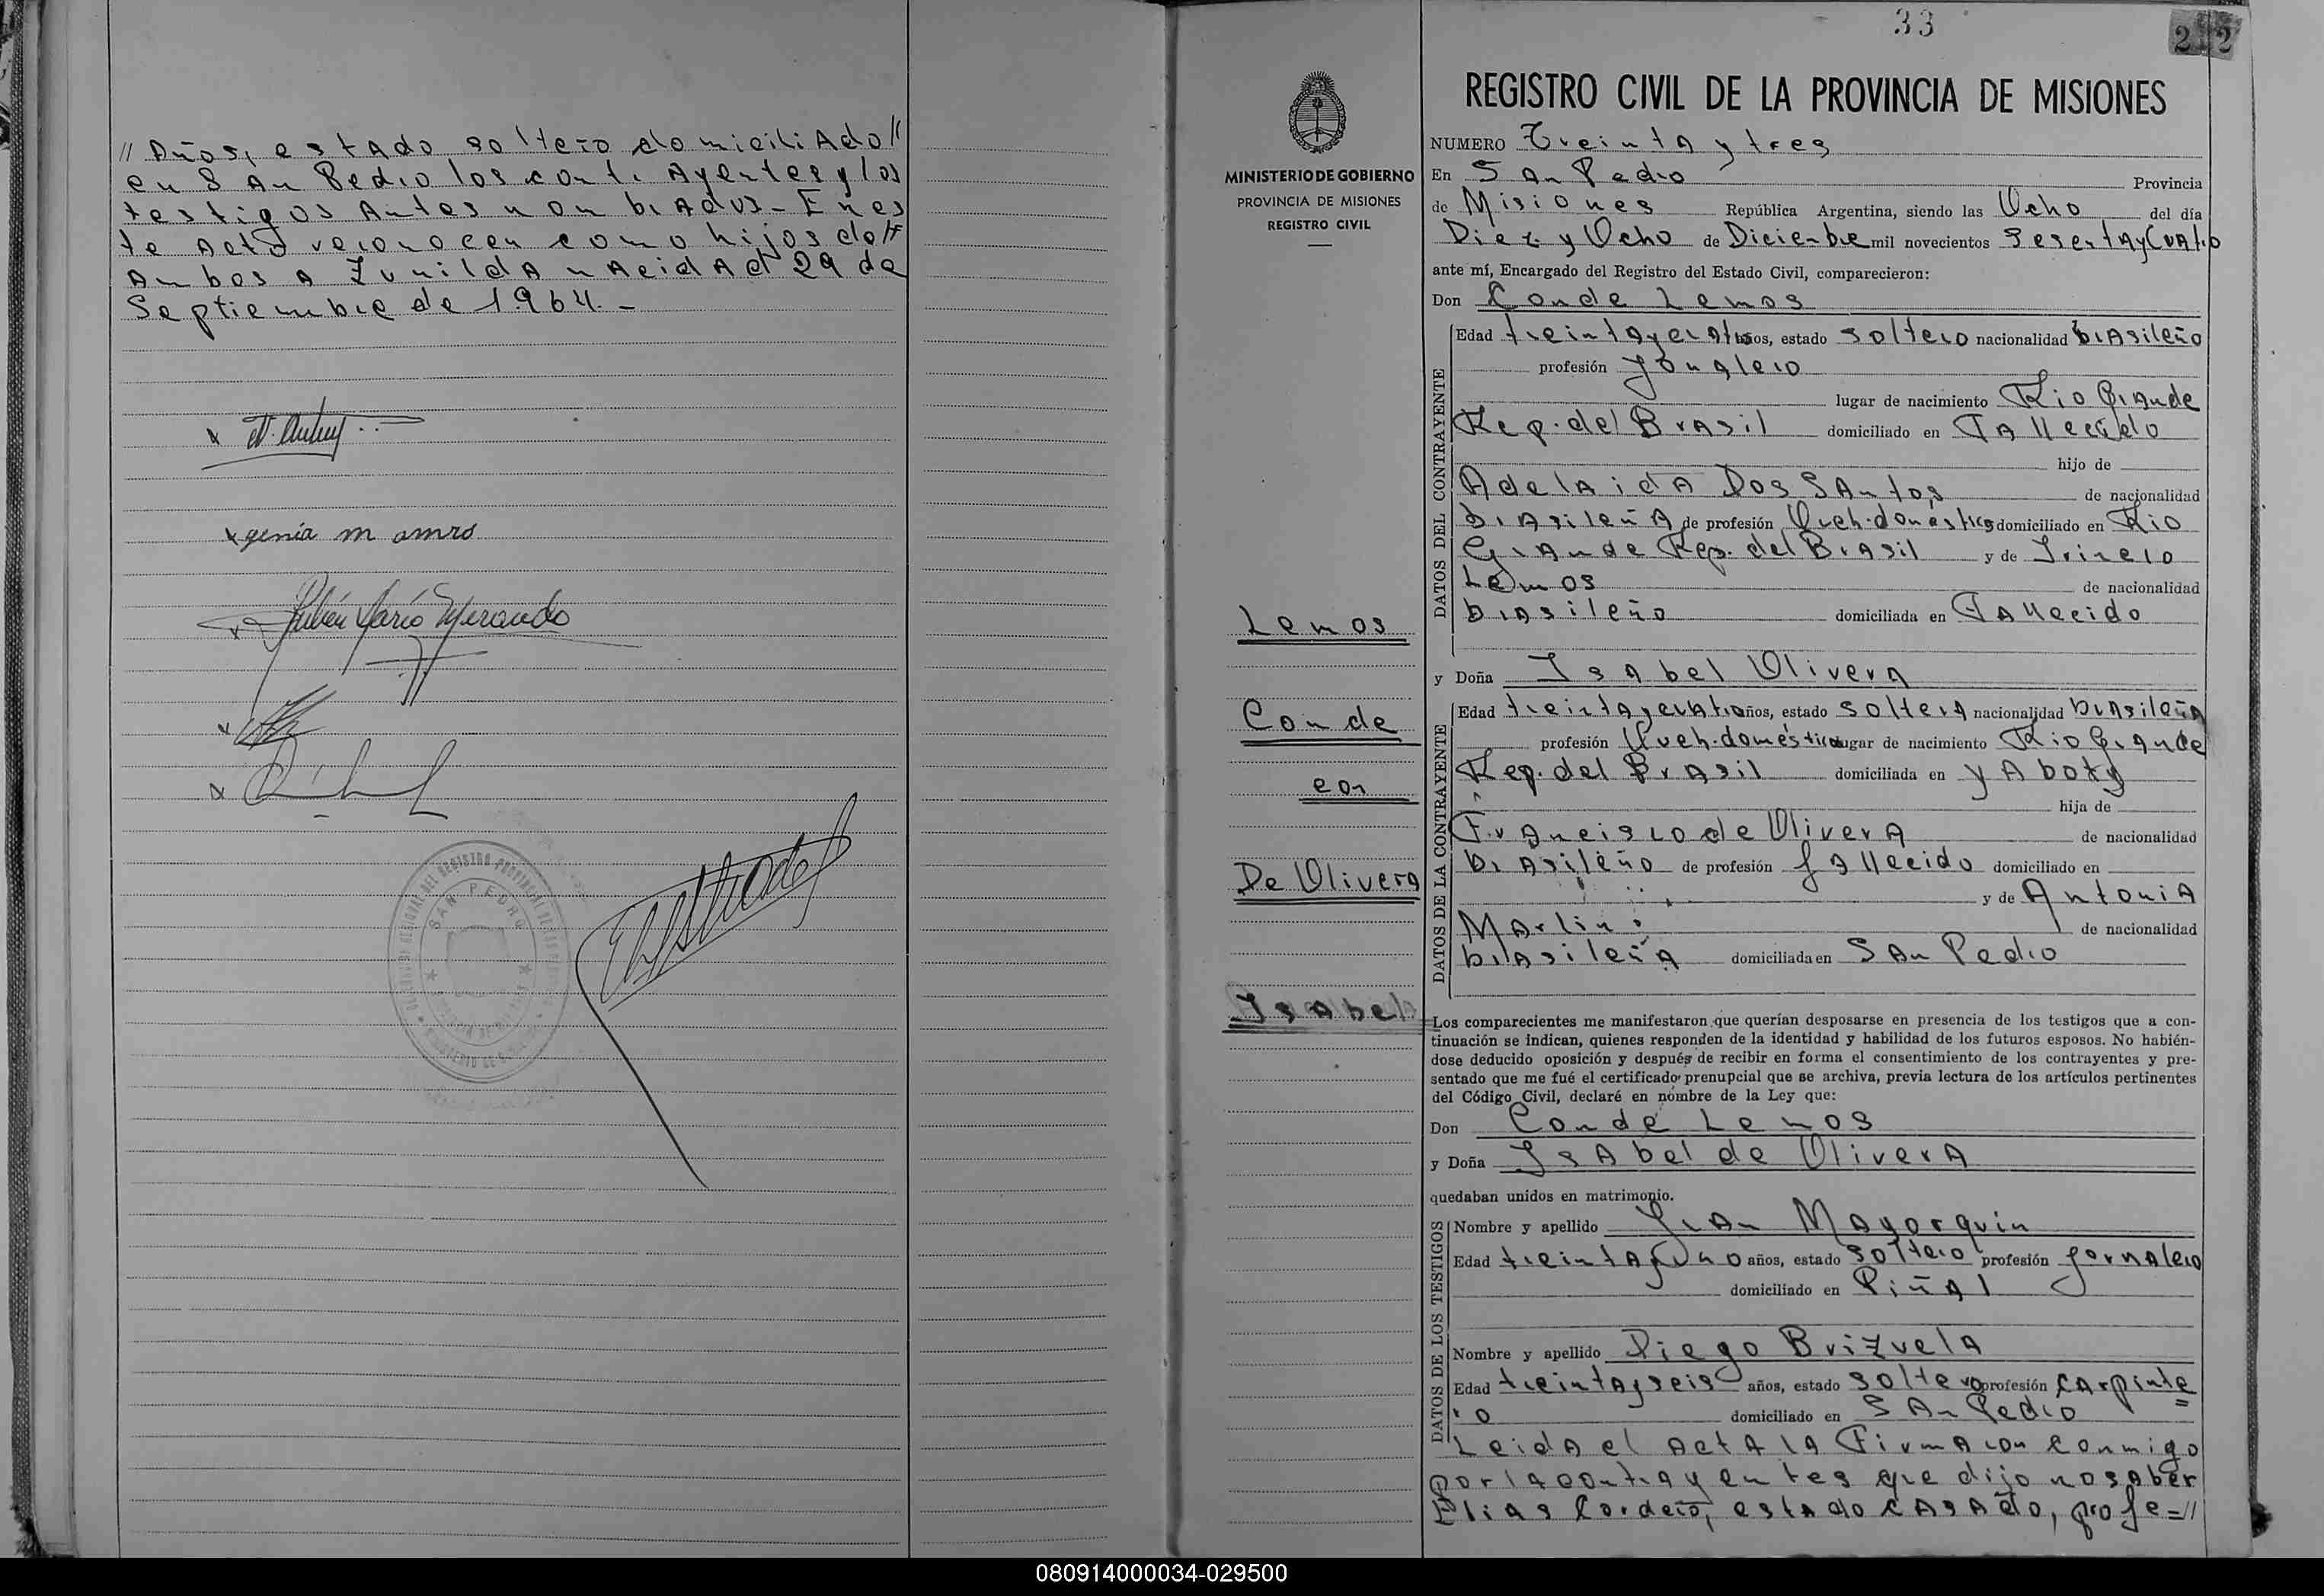 // Años, estado soltero domiciliado//
en San Pedro los contrayentes y los
testigos antes nombrados - En es
te acto reconocen como hijos de//
ambos a Zunilda nacida el 29 de
Septiembre de 1964. -
x
x genia m amro
x Rubén Darío Merando
x
x
SAN PEDRO
33
212
REGISTRO CIVIL DE LA PROVINCIA DE MISIONES
MINISTERIO DE GOBIERNO
PROVINCIA DE MISIONES
REGISTRO CIVIL
Lemos
Conde
con
De Olivera
Isabel
NUMERO Treinta y tres
En San Pedro Provincia
de Misiones República Argentina, siendo las Ocho del día
Diez y Ocho de Diciembre mil novecientos Sesenta y Cuatro
ante mí, Encargado del Registro del Estado Civil, comparecieron:
Don Conde Lemos
DATOS DEL CONTRAYENTE
Edad treinta y cuatro años, estado soltero nacionalidad brasileño
profesión Jornalero
lugar de nacimiento Rio Grande
Rep. del Brasil domiciliado en Fallecido
hijo de
Adelaida Dos Santos de nacionalidad
brasileña de profesión Queh. domésticos domiciliado en Rio
Grande Rep. del Brasil y de Irinero
Lemos de nacionalidad
brasileño domiciliada en Fallecido
y Doña Isabel Olivera
DATOS DE LA CONTRAYENTE
Edad treinta y cuatro años, estado soltera nacionalidad brasileña
profesión Queh. domésticos lugar de nacimiento Rio Grande
Rep. del Brasil domiciliada en Yaboty
hija de
Francisco de Olivera de nacionalidad
brasileño de profesión fallecido domiciliado en
y de Antonia
Marlin de nacionalidad
brasileña domiciliada en San Pedro
Los comparecientes me manifestaron que querían desposarse en presencia de los testigos que a con-
tinuación se indican, quienes responden de la identidad y habilidad de los futuros esposos. No habién-
dose deducido oposición y después de recibir en forma el consentimiento de los contrayentes y pre-
sentado que me fué el certificado prenupcial que se archiva, previa lectura de los artículos pertinentes
del Código Civil, declaré en nombre de la Ley que:
Don Conde Lemos
y Doña Isabel de Olivera
quedaban unidos en matrimonio.
DATOS DE LOS TESTIGOS
Nombre y apellido Juan Mayorquin
Edad treinta y uno años, estado soltero profesión jornalero
domiciliado en Piñal
Nombre y apellido Diego Brizuela
Edad treinta y seis años, estado soltero profesión carpinte
ro domiciliado en San Pedro
Leida el acta la Firmaron Conmigo
por la contrayentes que dijo no saber
Elias Cordero, estado casado, profe=//
080914000034-029500